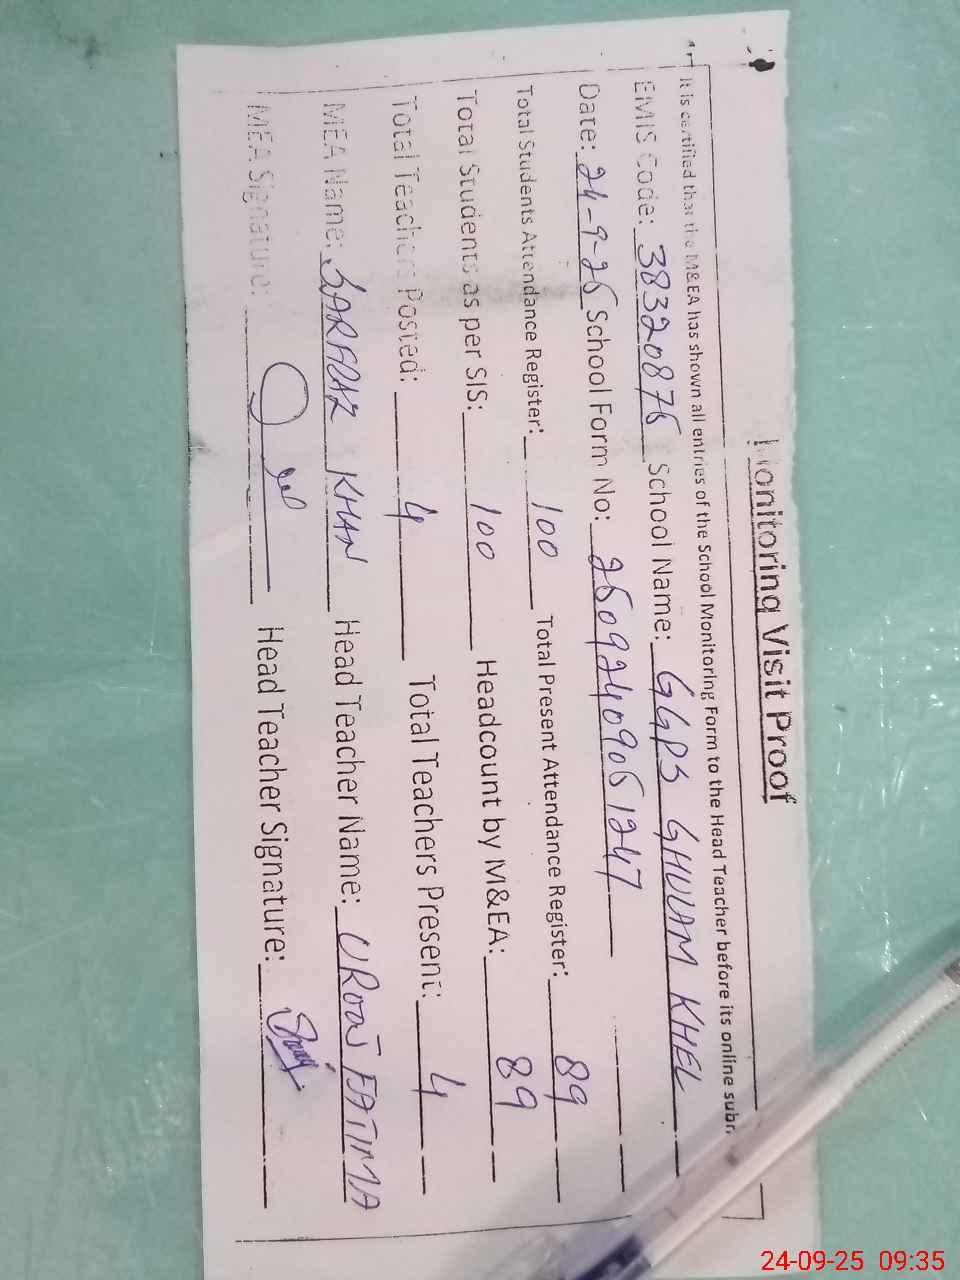 Monitoring Visit Proof
It is certified that the M&EA has shown all entries of the School Monitoring Form to the Head Teacher before its online subm
EMIS Code: 38320876 School Name: GGPS GHULAM KHEL
Date: 24-9-25 School Form No: 25092409051247
Total Students Attendance Register: 100 Total Present Attendance Register: 89
Total Students as per SIS: 100 Headcount by M&EA: 89
Total Teachers Posted: 4 Total Teachers Present: 4
MEA Name: SARADAR KHAN Head Teacher Name: UROOJ FATIMA
MEA Signature: Head Teacher Signature:
24-09-25 09:35